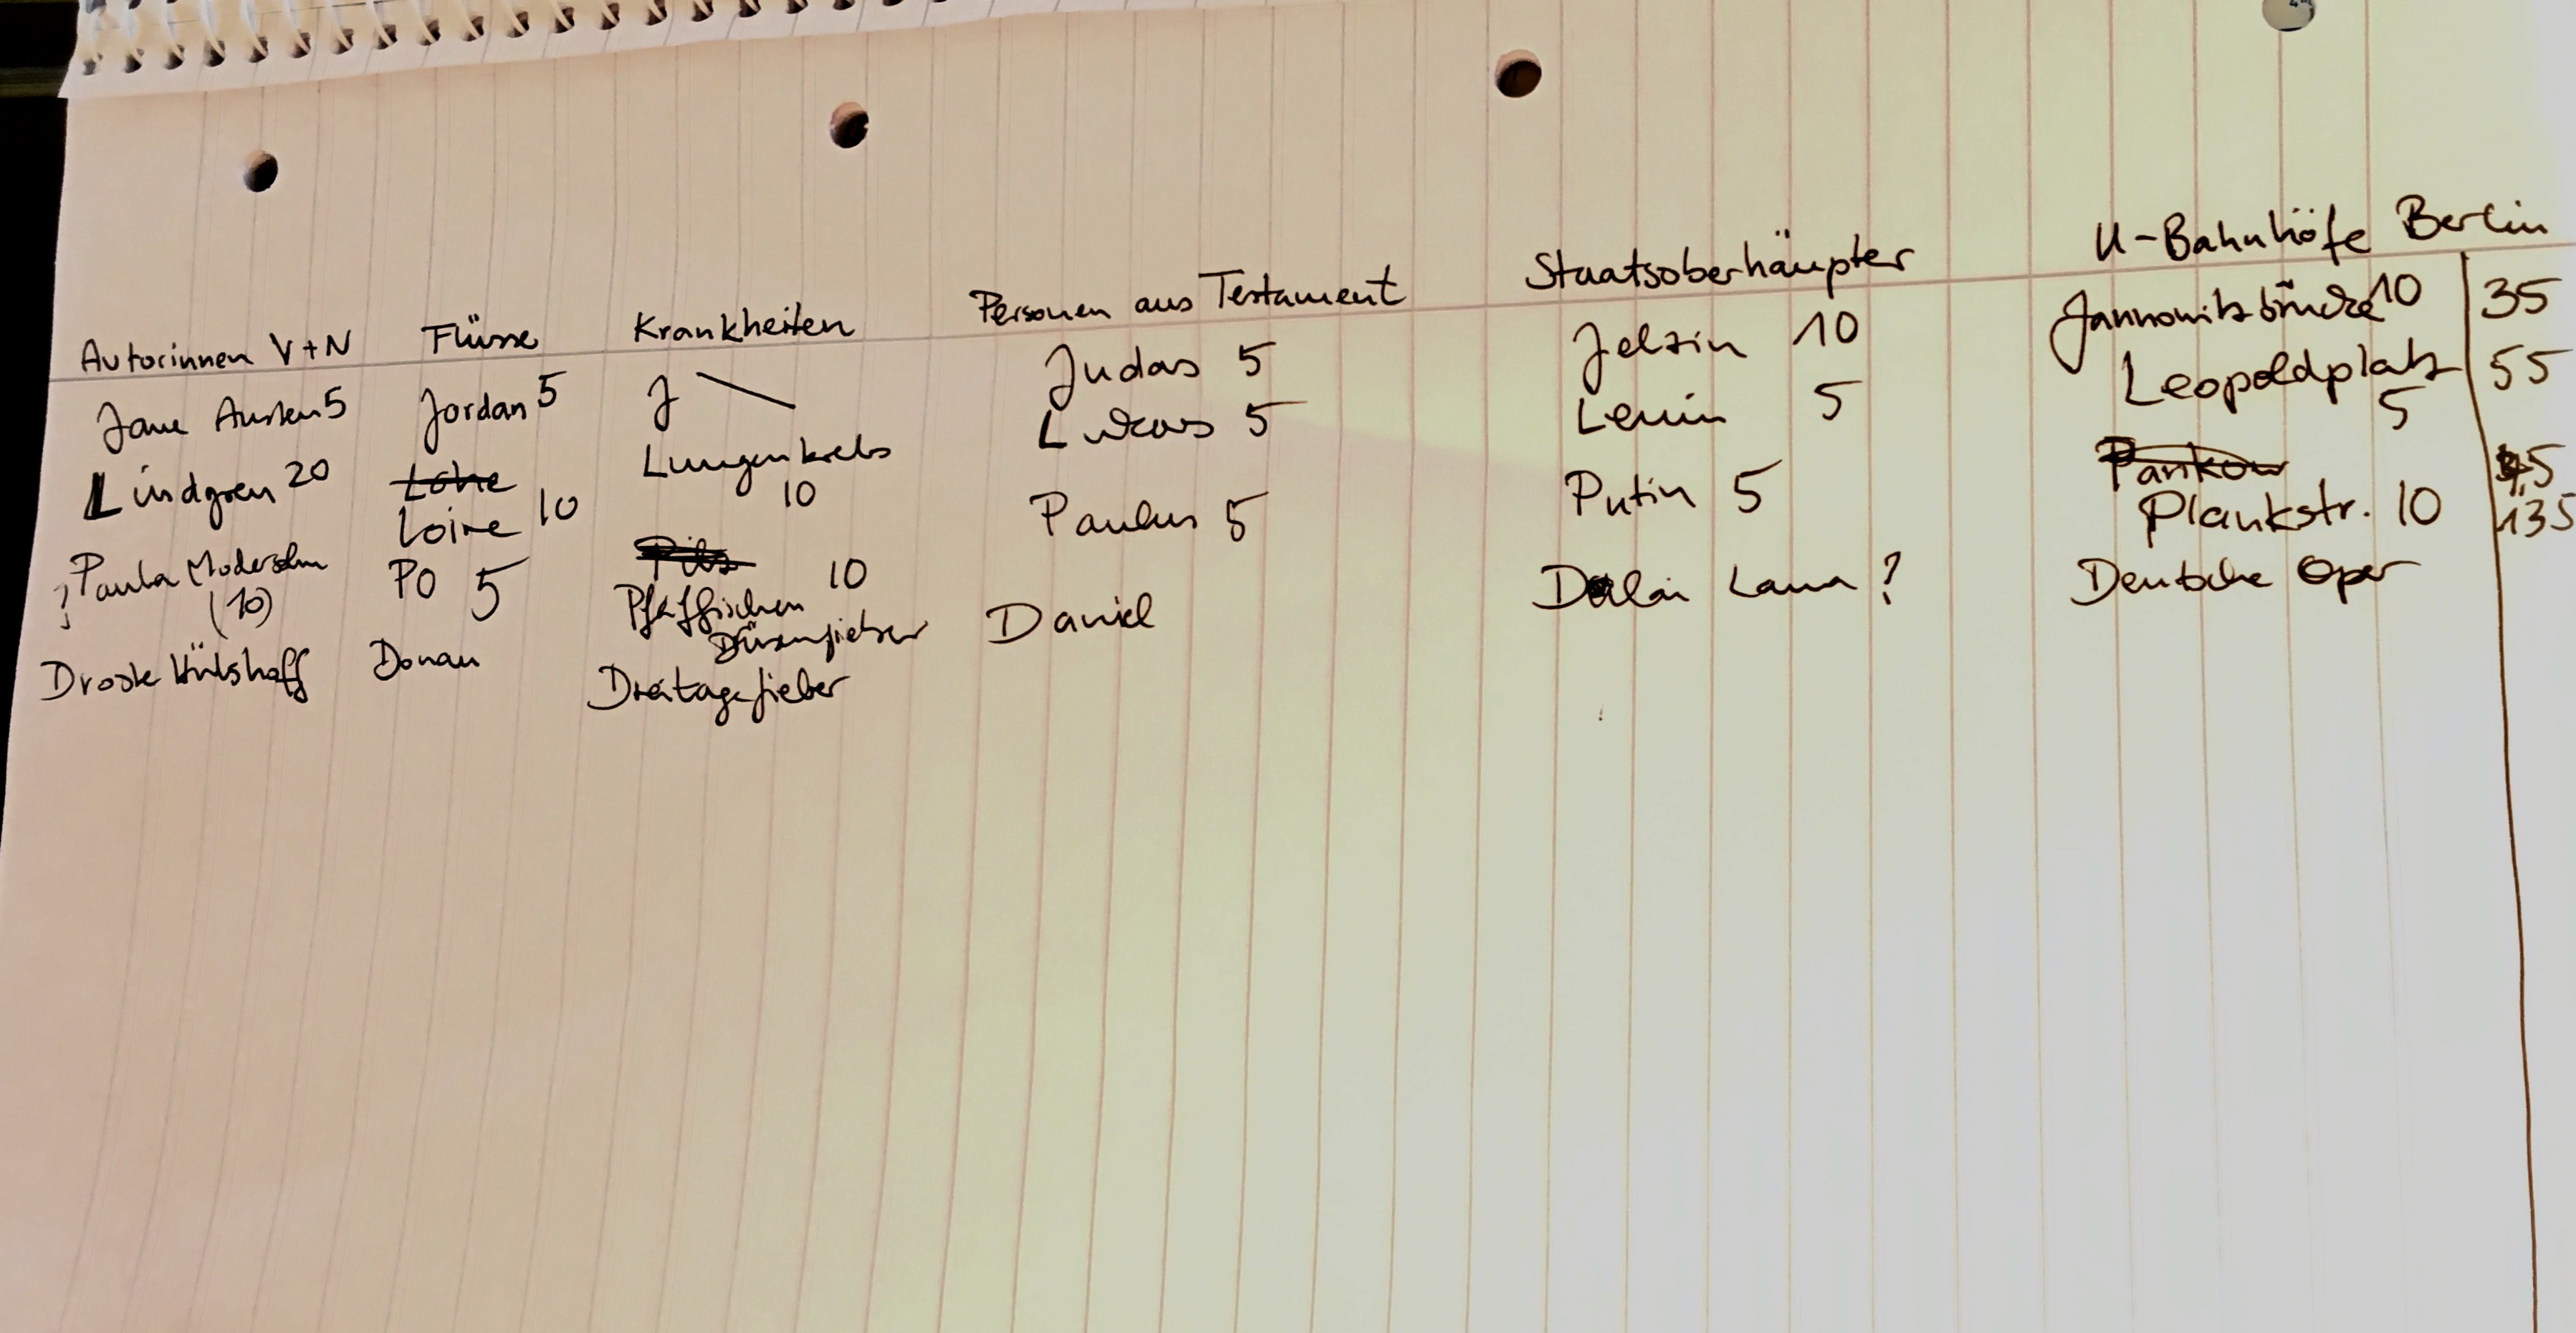 Autorinnen V+N Flüsse Krankheiten Personen aus Testament Staatsoberhäupter U-Bahnhöfe Berlin
Jane Austen 5 Jordan 5 J Judas 5 Jelzin 10 Jannowitzbrücke 10 35
Lindgren 20 Lohe Lungenkrebs Lukas 5 Lenin 5 Leopoldplatz 55
Loire 10 10 5
Paula Modersohn PO 5 Pils Paulus 5 Putin 5 Pankow 5
? (10) Pfeiffrischen 10 Plankstr. 10 135
Drüsenfieber
Droste Hülshoff Donau Dreitagefieber Daniel Dalai Lama ? Deutsche Oper